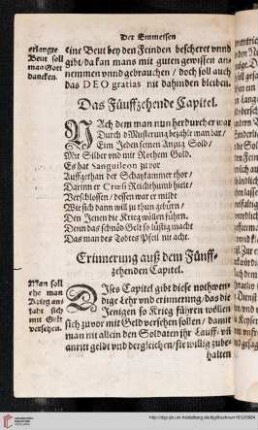 Der Emmelsen
erlangte
Beut soll
man Gott
dancken.
eine Beut bey den Feinden bescheret vnnd
gibt / da kan mans mit guten gewissen an-
nemmen vnnd gebrauchen / doch soll auch
das DEO gratias nit dahinden bleiben.
Das Fünffzehende Capitel.
NAch dem man nun her durch er war
Durch d'Musterung bezahlt man bar /
Eim Jeden seinen Anzug Sold /
Mit Silber vnd mit Rothem Gold.
Es hat Sanguileon zuvor
Auffgethan der Schatzkammer thor /
Darinn er Crœsi Reichthumb hielt /
Verschlossen / dessen war er milt
Wie sich dann will zu thun gebürn /
Den Jenen die Krieg wöllen führen.
Denn das schnöd Gelt so lüstig macht
Das man des Todtes Pfeil nit acht.
Erinnerung auß dem Fünff-
zehenden Capitel.
Man soll
ehe man
Krieg an-
faht sich
mit Gelt
versehen.
DIses Capitel gibt diese nothwen-
dige Lehr vnd erinnerung / das die
Jenigen so Krieg führen wöllen
sich zuvor mit Geld versehen sollen / damit
man nit allein den Soldaten jhr Lauff- vñ
anritt geldt vnd dergleichen / sie willig zube-
halten